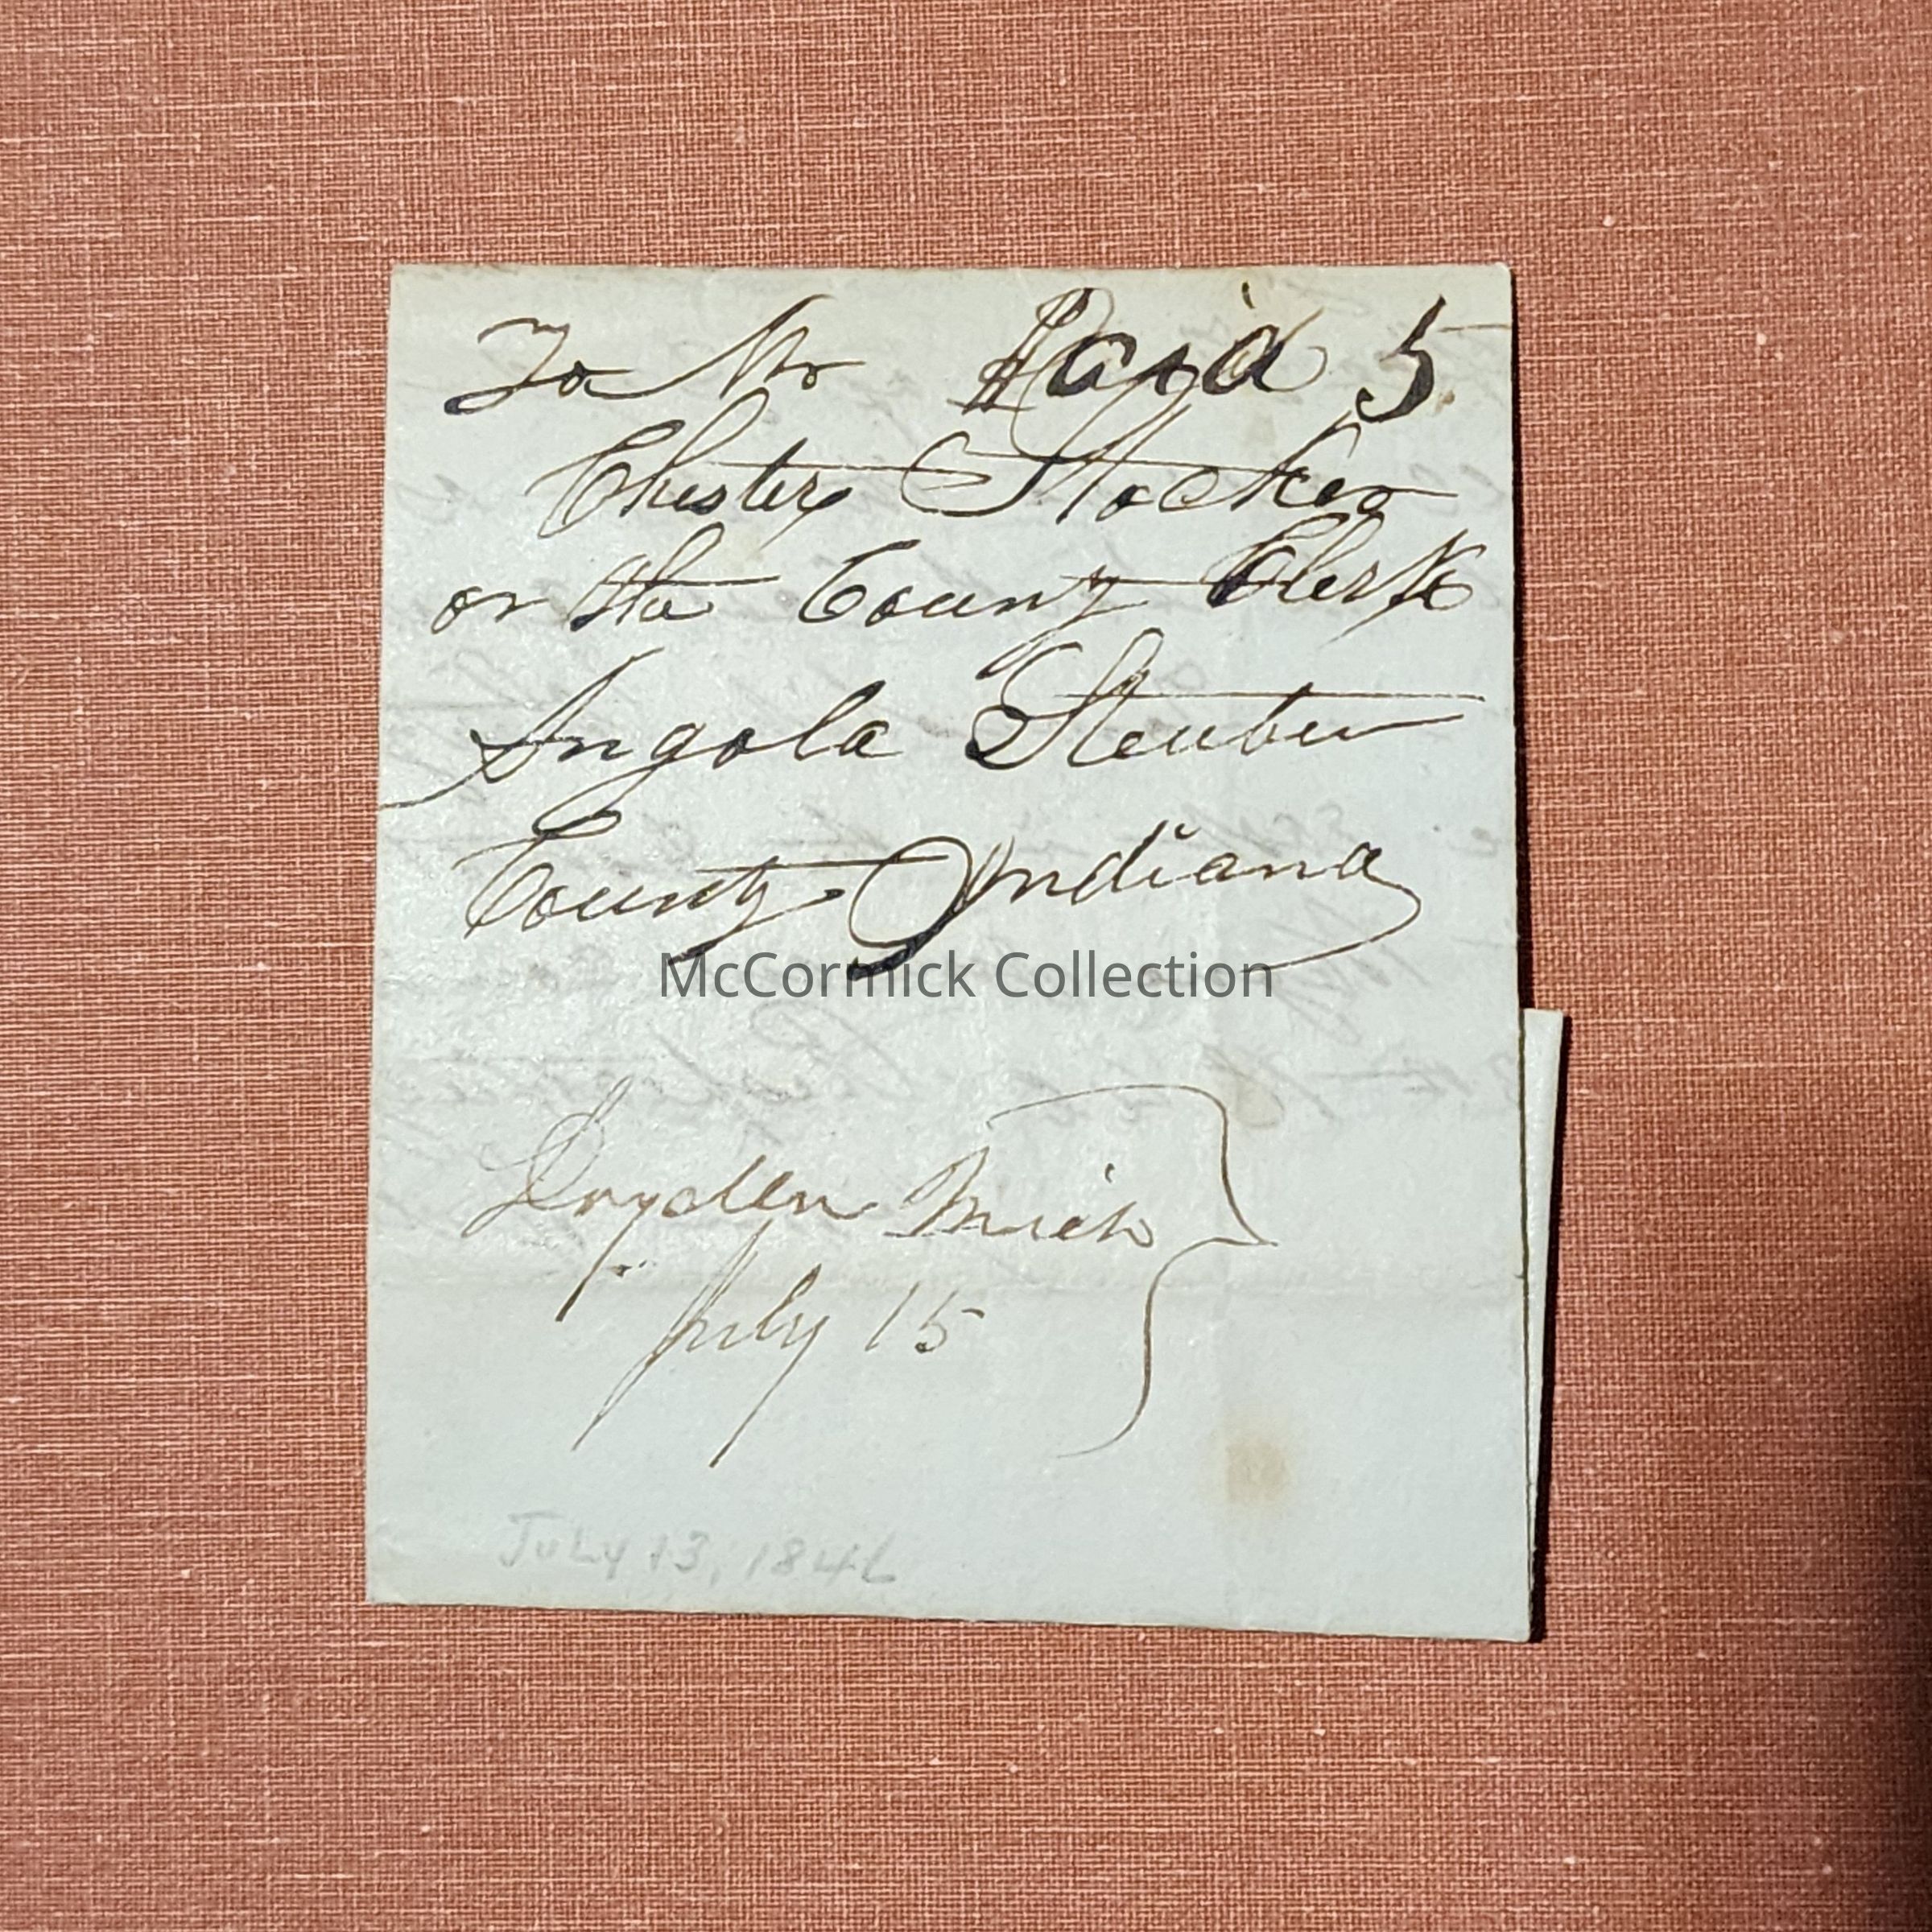 To Mr Paid 5
Chester Stocker
or the County Clerk
Angola Steuben
County Indiana
McCormick Collection
Dryden Mich
July 15
July 13, 1846